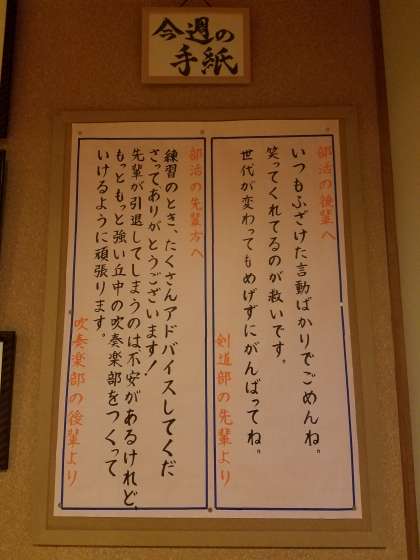 今週の
手紙
部活の後輩へ
いつもふざけた言動ばかりでごめんね。
笑ってくれてるのが救いです。
世代が変わってもめげずにがんばってね。
剣道部の先輩より
部活の先輩方へ
練習のとき、たくさんアドバイスしてくだ
さってありがとうございます！
先輩が引退してしまうのは不安があるけれど、
もっともっと強い丘中の吹奏楽部をつくって
いけるように頑張ります。
吹奏楽部の後輩より